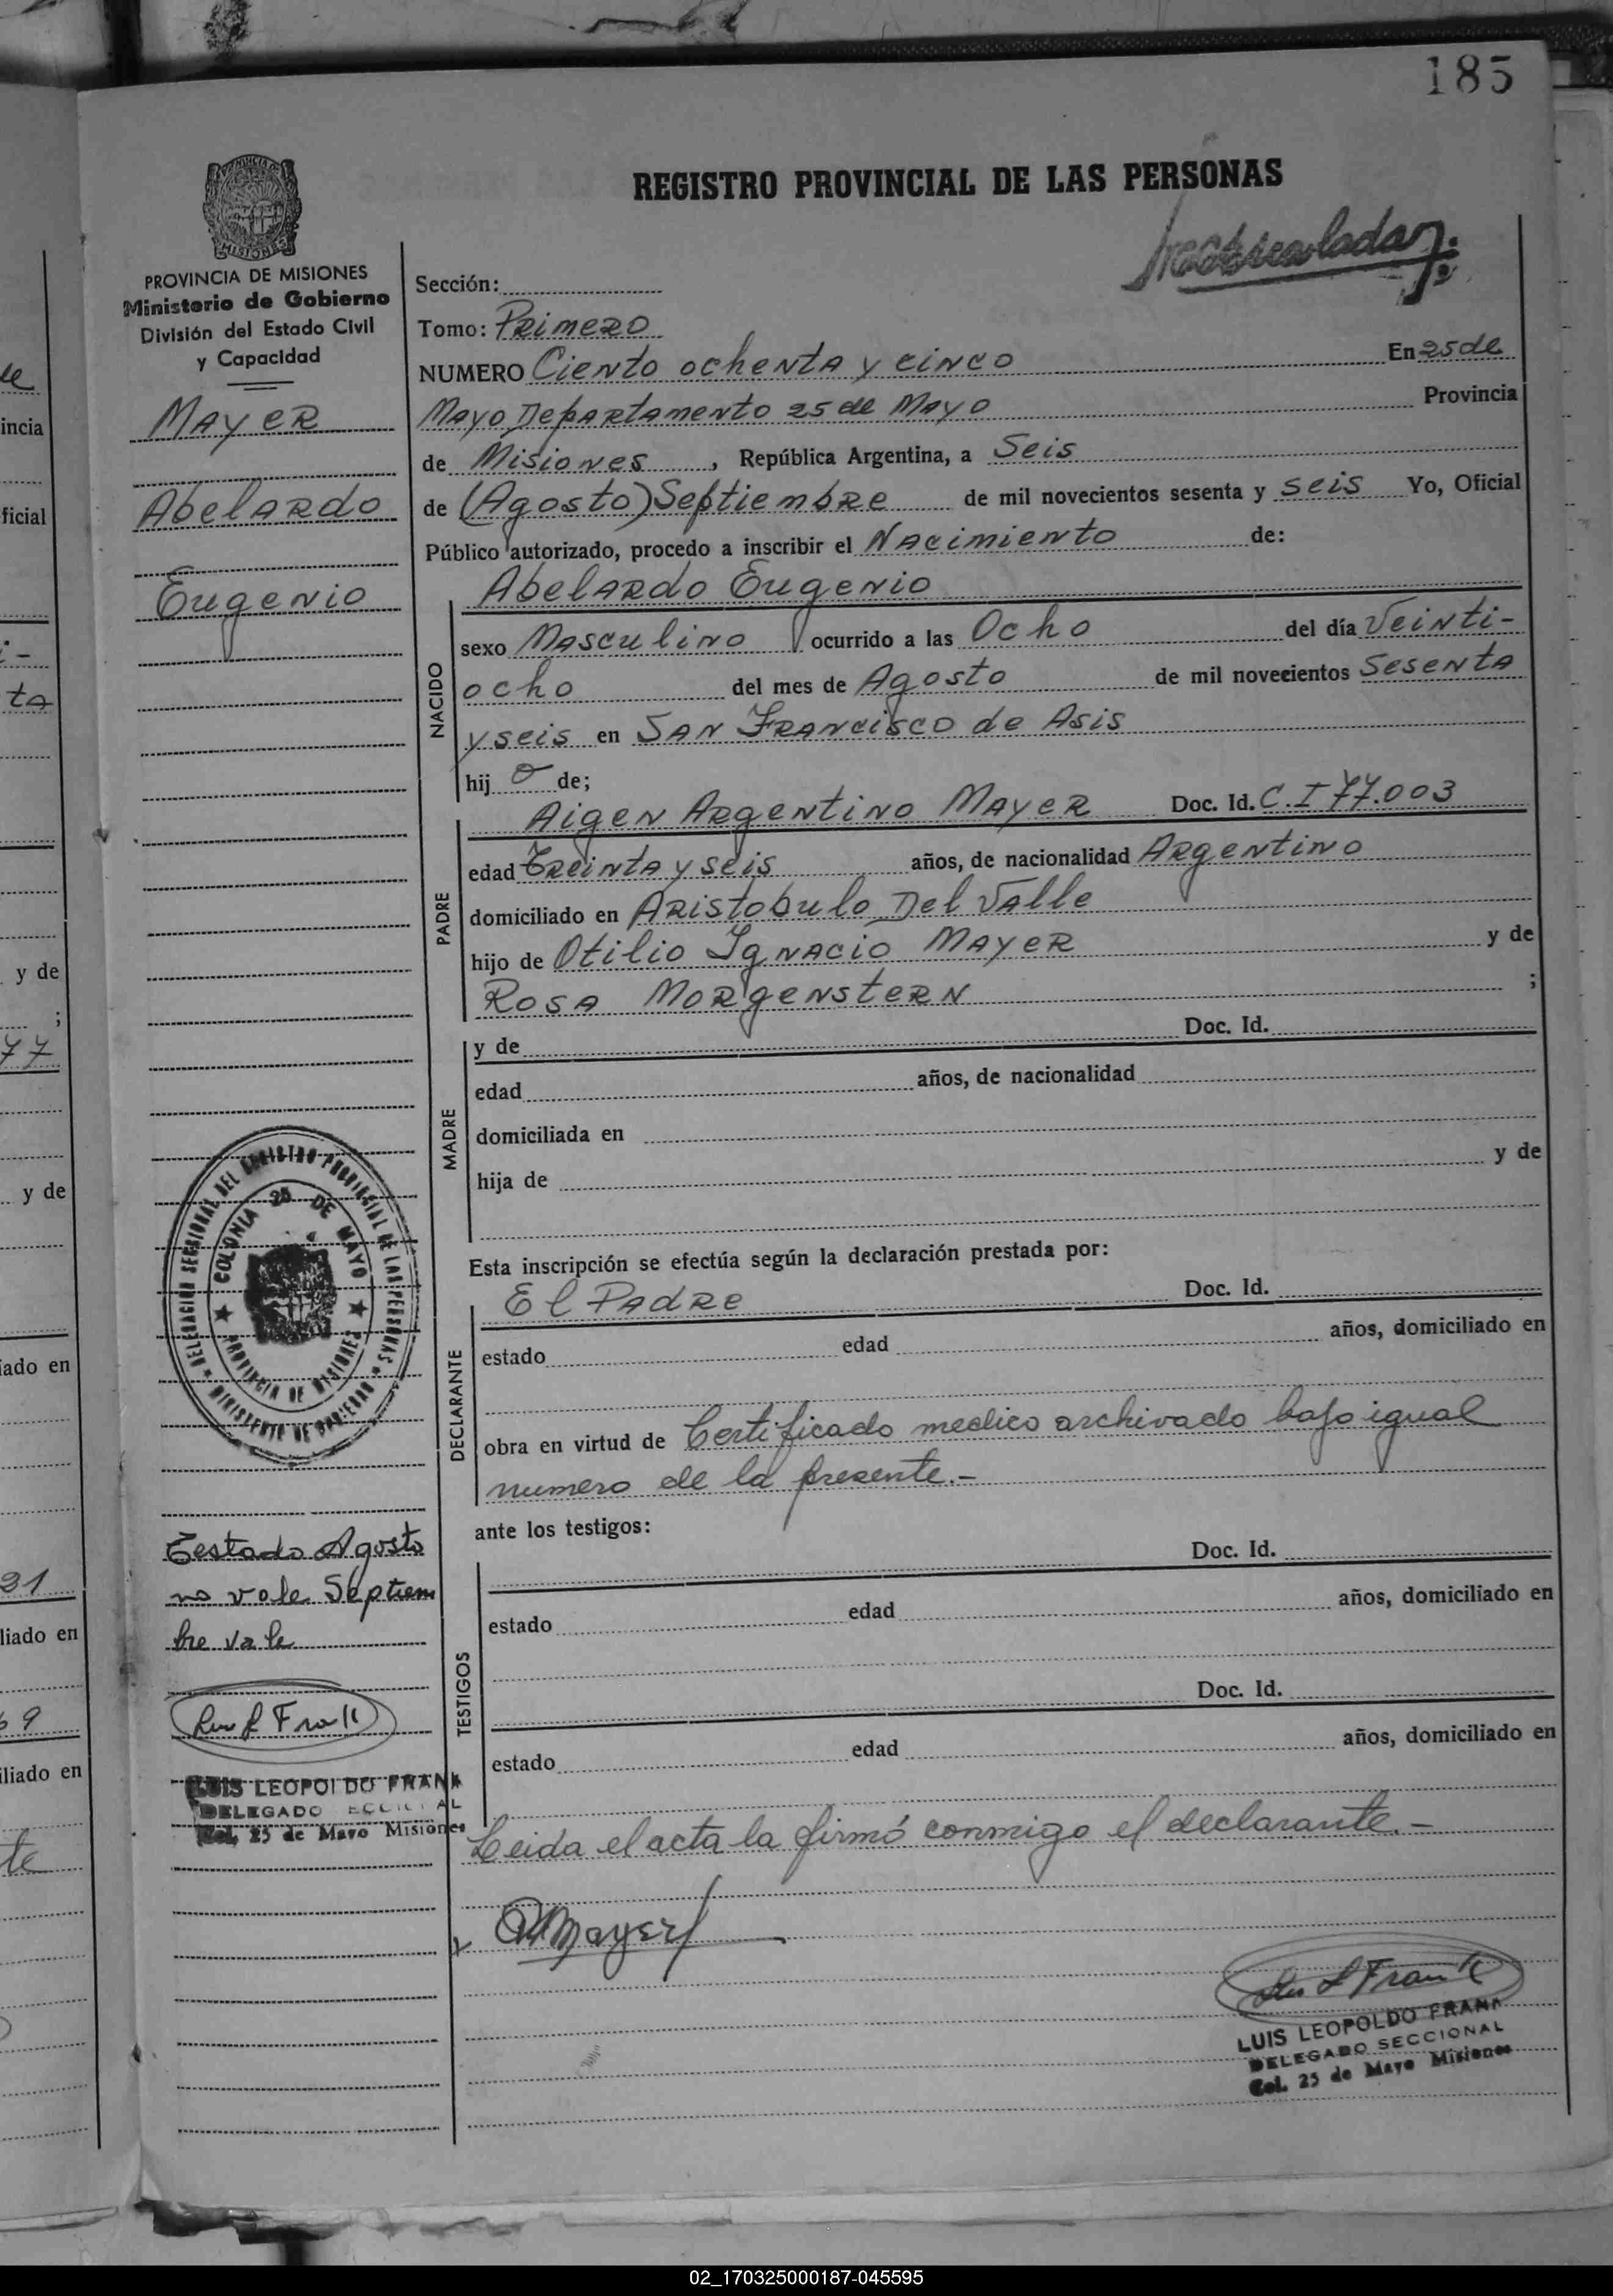 185
REGISTRO PROVINCIAL DE LAS PERSONAS
PROVINCIA DE MISIONES
Ministerio de Gobierno
División del Estado Civil
y Capacidad
MAYER
Abelardo
Eugenio
Sección:
Tomo: PRIMERO
NUMERO Ciento ochenta y cinco En 25 de
Mayo Departamento 25 de Mayo Provincia
de Misiones, República Argentina, a Seis
de (Agosto) Septiembre de mil novecientos sesenta y seis Yo, Oficial
Público autorizado, procedo a inscribir el Nacimiento de:
Abelardo Eugenio
NACIDO
sexo Masculino ocurrido a las Ocho del día Veinti-
ocho del mes de Agosto de mil novecientos Sesenta
y seis en San Francisco de Asis
hijo de;
PADRE
Aigen Argentino Mayer Doc. Id. C.I 77.003
edad Treinta y seis años, de nacionalidad Argentino
domiciliado en Aristobulo Del Valle
hijo de Otilio Ignacio Mayer y de
Rosa Morgenstern ;
MADRE
y de Doc. Id.
edad años, de nacionalidad
domiciliada en
hija de y de
Esta inscripción se efectúa según la declaración prestada por:
DECLARANTE
El Padre Doc. Id.
estado edad años, domiciliado en
obra en virtud de Certificado medico archivado bajo igual
numero de la presente.-
ante los testigos:
TESTIGOS
Doc. Id.
estado edad años, domiciliado en
Doc. Id.
estado edad años, domiciliado en
Leida el acta la firmó conmigo el declarante.-
Mayer
LUIS LEOPOLDO FRANK
DELEGADO SECCIONAL
Col. 25 de Mayo Misiones
DELEGACION SECCIONAL DEL REGISTRO PROVINCIAL DE LAS PERSONAS
MINISTERIO DE GOBIERNO
COLONIA 25 DE MAYO
PROVINCIA DE MISIONES
Testado Agosto
no vale Septiem
bre vale
Luis L Frank
LUIS LEOPOLDO FRANK
DELEGADO SECCIONAL
Col. 25 de Mayo Misiones
de
incia
ficial
ta
y de
;
77
y de
iado en
31
liado en
69
iliado en
te
02_170325000187-045595